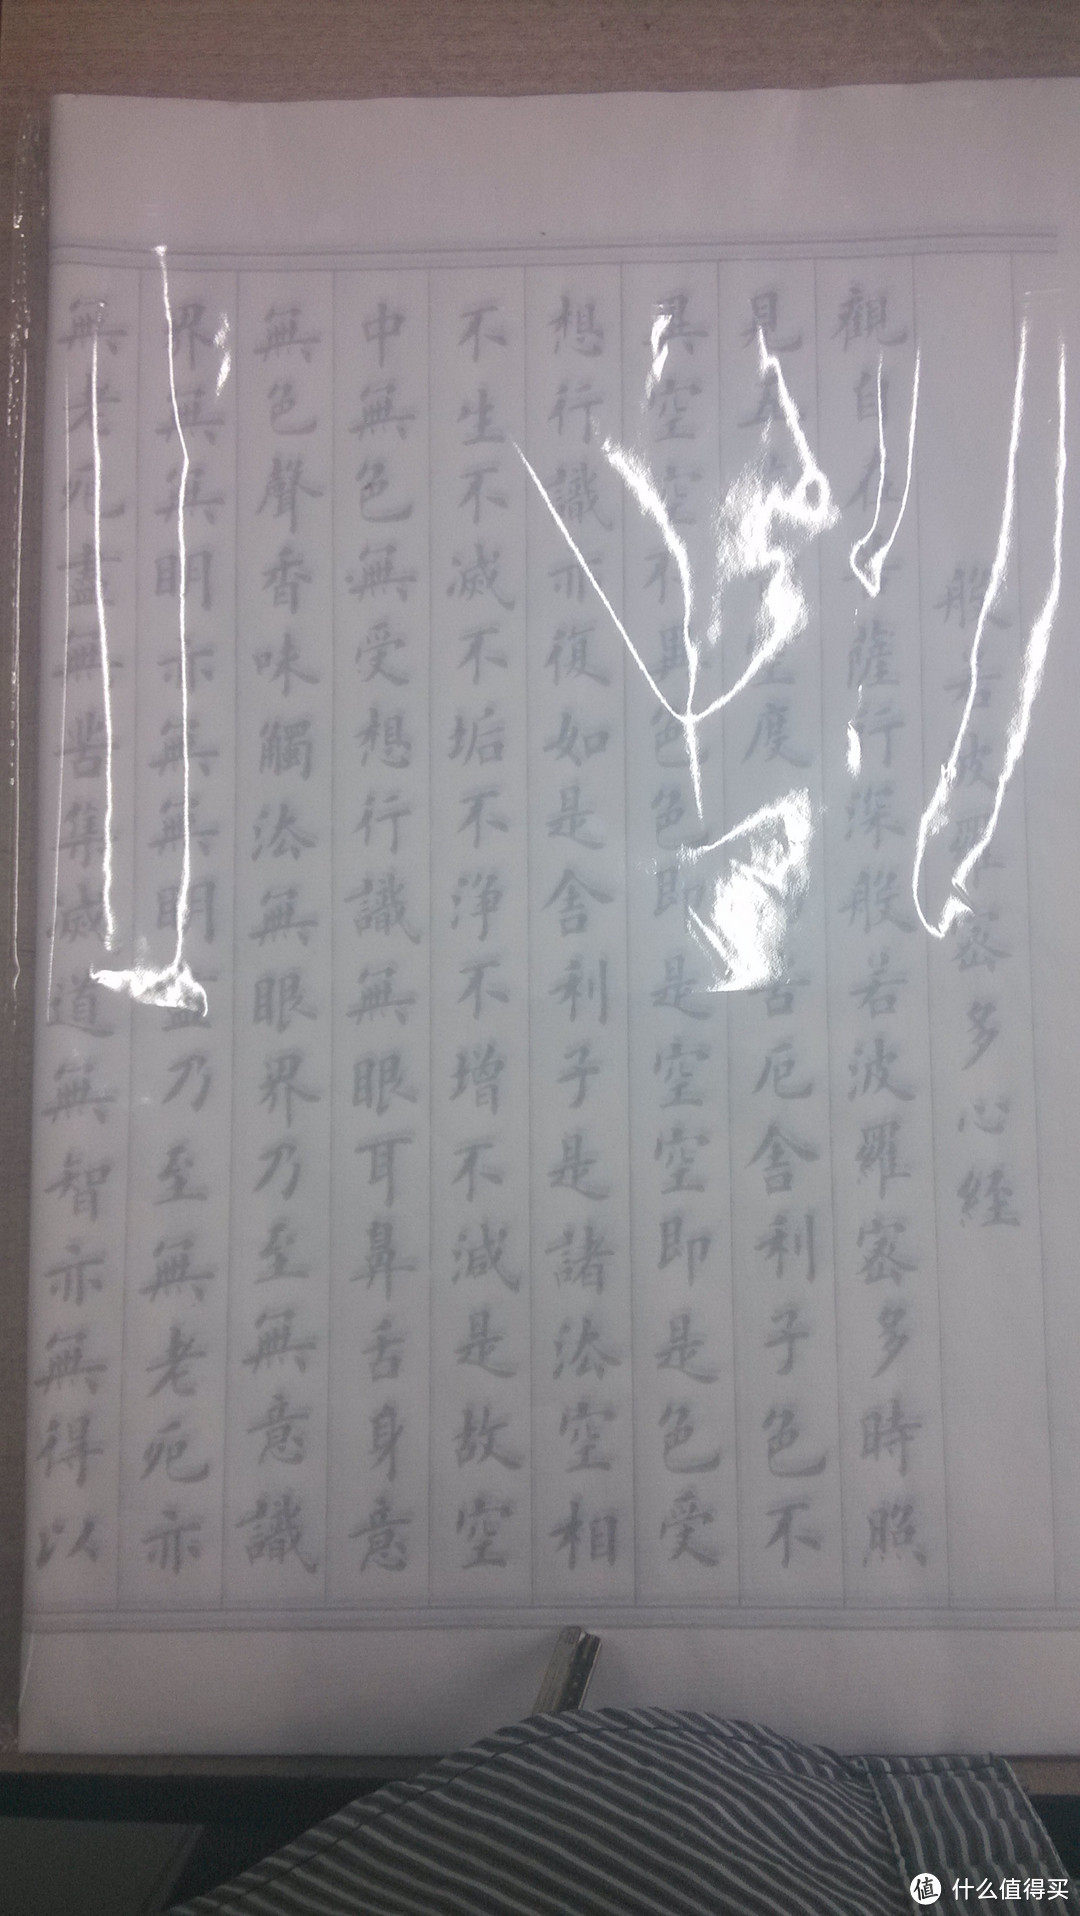 般若波羅密多心経
觀自在菩薩行深般若波羅密多時照
見五皆空度苦厄舍利子色不
異空空不異色色即是空空即是色受
想行識亦復如是舍利子是諸法空相
不生不滅不垢不淨不增不減是故空
中無色無受想行識無眼耳鼻舌身意
無色聲香味觸法無眼界乃至無意識
界無無明亦無無明盡乃至無老死亦
無老死盡無苦集滅道無智亦無得以
值 什么值得买